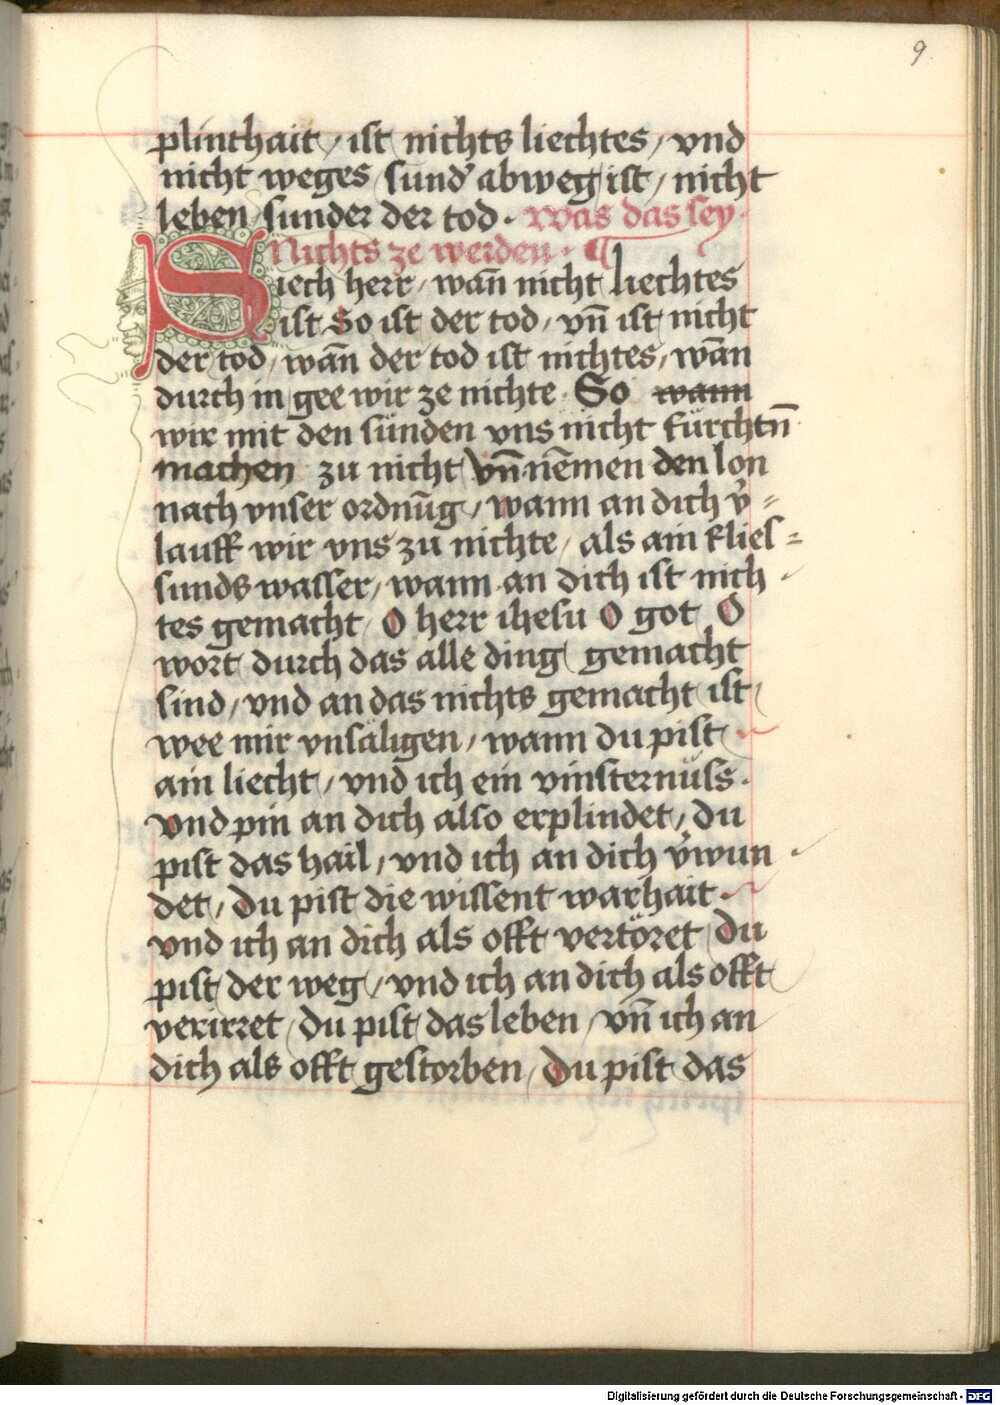 9
plinthait / ist nichts liechtes / vnd
nicht weges / sund' abweg ist / nicht
leben / sunder der tod · was das sey ·
Nichts ze werden · ¶
Siech herr / wañ nicht liechtes
ist So ist der tod / vñ ist nicht
der tod / wañ der tod ist nichtes / wañ
durch in gee wir ze nichte · So wann
wir mit den sünden vns nicht fürchtñ
machen zu nicht vñ nemen den lon
nach vnser ordnūg / wann an dich v̉ =
lauff wir vns zu nichte / als ain flies =
sunds wasser / wann an dich ist nich
tes gemacht / O herr ihesu O got O
wort durch das alle ding gemacht
sind / vnd an das nichts gemacht ist /
wee mir vnsäligen / wann du pist
ain liecht / vnd ich ein vinsternüss ·
vnd pin an dich also erplindet / du
pist das hail / vnd ich an dich v̉wun
det / du pist die wissent warhait ·
vnd ich an dich als offt vertöret Du
pist der weg / vnd ich an dich als offt
verirret / du pist das leben / vñ ich an
dich als offt gestorben / Du pist das
Digitalisierung gefördert durch die Deutsche Forschungsgemeinschaft - DFG